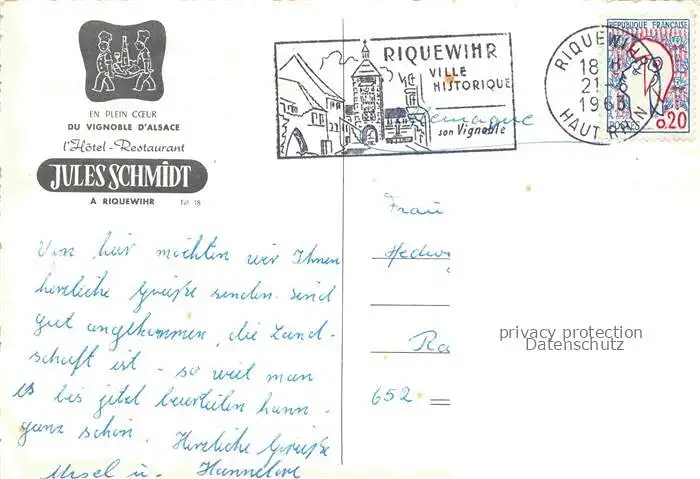 EN PLEIN CŒUR
DU VIGNOBLE D'ALSACE
l'Hôtel-Restaurant
JULES SCHMIDT
A RIQUEWIHR Tél. 18
RIQUEWIHR
VILLE
HISTORIQUE
son Vignoble
RIQUEWIHR
18 H
21-6
196
HAUT RHIN
REPUBLIQUE FRANÇAISE
POSTES 0,20
Allemagne
Frau
Hedw
Ra
652
privacy protection
Datenschutz
Von hier möchten wir Ihnen
herzliche Grüße senden. Sind
gut angekommen, die Land-
schaft ist - so weit man
es bis jetzt beurteilen kann -
ganz schön. Herzliche Grüße
Ursel u. Hannelore